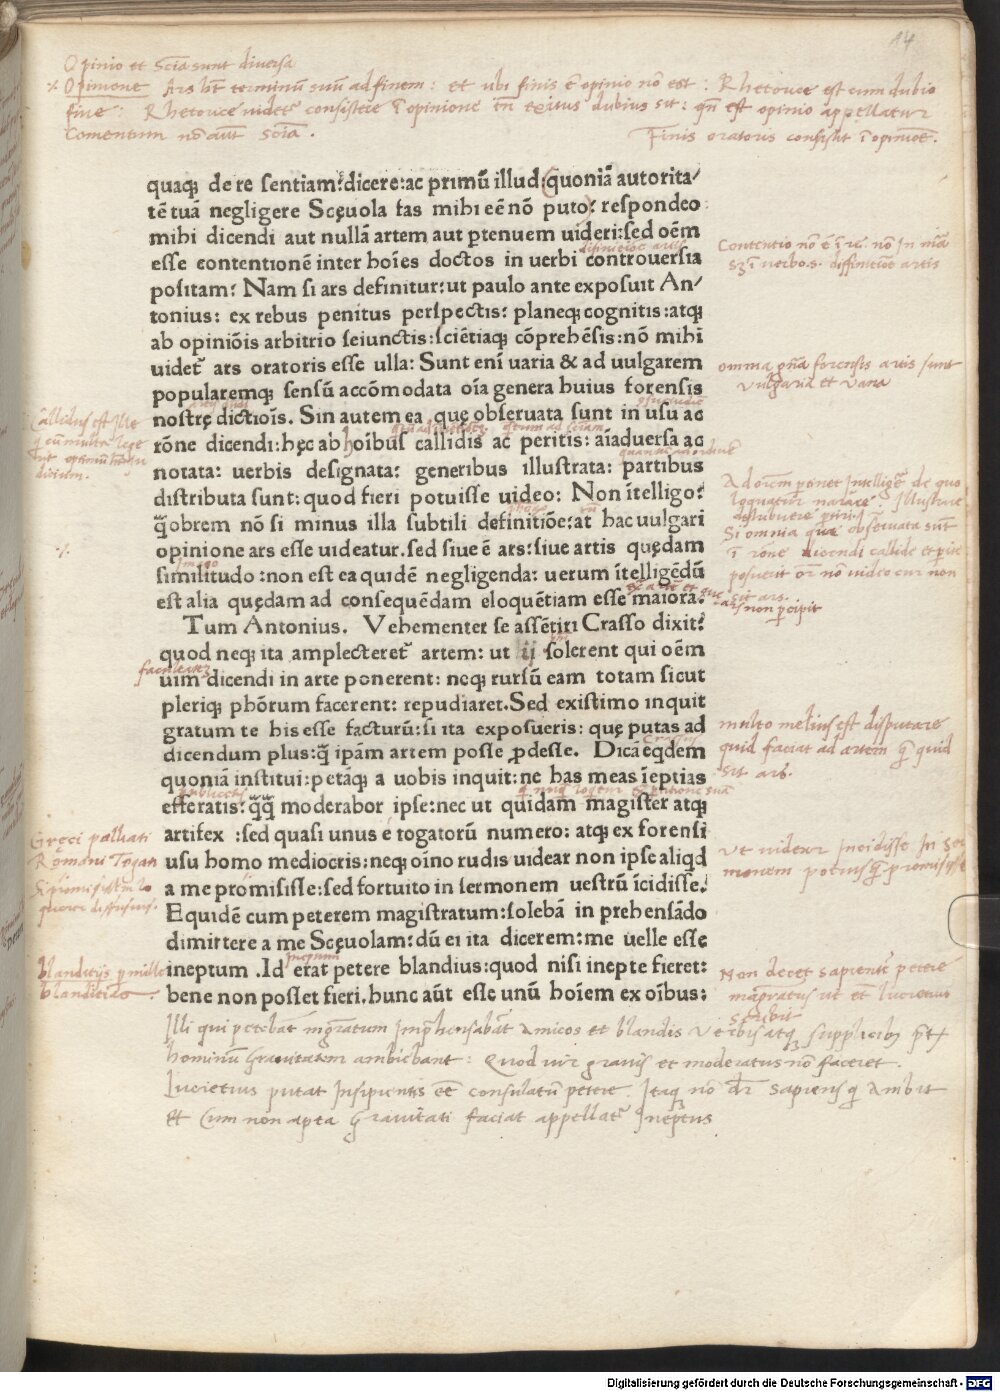 14
Opinio et Scia sunt diversa
Opinione Ars ht terminum suum ad finem: et ubi finis ē opinio nō est: Rhetorice est cum dubio
fine: Rhetorice videt consistere ī opinione exitus dubius sit: opinio appellatur
Comentum nō aut Scia. Finis oratoris consistit ī opinione.
quaq; de re sentiam? dicere: ac primū illud: quoniā autorita/
tē tuā negligere Scęuola fas mihi eē nō puto: respondeo
mihi dicendi aut nullā artem aut ꝑtenuem uideri: sed oēm
diffinitiōe artis
esse contentionē inter hoīes doctos in uerbi controuersia
positam: Nam si ars definitur: ut paulo ante exposuit An/
tonius: ex rebus penitus perspectis: planeq; cognitis: atq;
ab opiniōis arbitrio seiunctis: sciētiaq; cōprehēsis: nō mihi
uidet̄ ars oratoris esse ulla: Sunt enī uaria & ad uulgarem
popularemq; sensū accōmodata oīa genera huius forensis
nostrę dictiōis. Sin autem ea quę obseruata sunt in usu ac
rōne dicendi: hęc ab hoībus callidis ac peritis: aīaduersa ac
notata: uerbis designata: generibus illustrata: partibus
distributa sunt: quod fieri potuisse uideo: Non ītelligo:
q̄obrem nō si minus illa subtili definitiōe: at hac uulgari
opinione ars esse uideatur. sed siue ē ars: siue artis quędam
imago
similitudo: non est ea quidē negligenda: uerum ītelligēdū
est alia quędam ad consequēdam eloquētiam esse maiora.
Tum Antonius. Vehementer se assētiri Crasso dixit:
quod neq; ita amplecteret̄ artem: ut ii solerent qui oēm
uim dicendi in arte ponerent: neq; rursū eam totam sicut
pleriq; phōrum facerent: repudiaret. Sed existimo inquit
gratum te his esse facturū: si ita exposueris: quę putas ad
Crassus
dicendum plus: q̄ ipām artem posse ꝓdesse. Dicā eqdem
quoniā institui: petāq; a uobis inquit: ne has meas īeptias
efferatis: q̄q̄ moderabor ipse: nec ut quidam magister atq;
artifex: sed quasi unus ē togatorū numero: atq; ex forensi
usu homo mediocris: neq; oīno rudis uidear non ipse aliqd
a me promisisse: sed fortuito in sermonem uestrū īcidisse.
Equidē cum peterem magistratum: solebā in prehensādo
dimittere a me Scęuolam: dū ei ita dicerem: me uelle esse
ineptum. Id erat petere blandius: quod nisi inepte fieret:
bene non posset fieri. hunc aūt esse unū hoīem ex oībus:
Contentio nō ē ī re nō In mīa
ī verbo .s. diffinitiōe artis
omnia gn̄a forensis artis sunt
vulgaria et varia
Callidus est ille
Ad orem ponet Intelligē de quo
loquatur narrare Illustrare
distribuere
Si omnia que observata sūt
ī rōne dicendi callide et
posuerit or nō video cur non
sit ars.
ars non ꝑcipit
multo melius est disputare
quid faciat ad artem q̄ quid
sit ars.
Gręci palliati
Romani Togati
Vt videar Incidisse In ser
monem potius q̄ promisisse
blanditiis
blanditias
Non decet sapientē petere
magratus ut Lucretius
scribit
Illi qui petebāt mgratum Imprhensabāt Amicos et blandis Verbis atq; supplicib;
hominū Gravitatem ambiebant: Quod vir gravis et moderatus nō faceret.
Lucretius putat Insipientis eē consulatū petere. Itaq; nō dr sapiens q Ambit
Et Cum non apta Gravitati faciat appellatr Ineptus
Digitalisierung gefördert durch die Deutsche Forschungsgemeinschaft - DFG